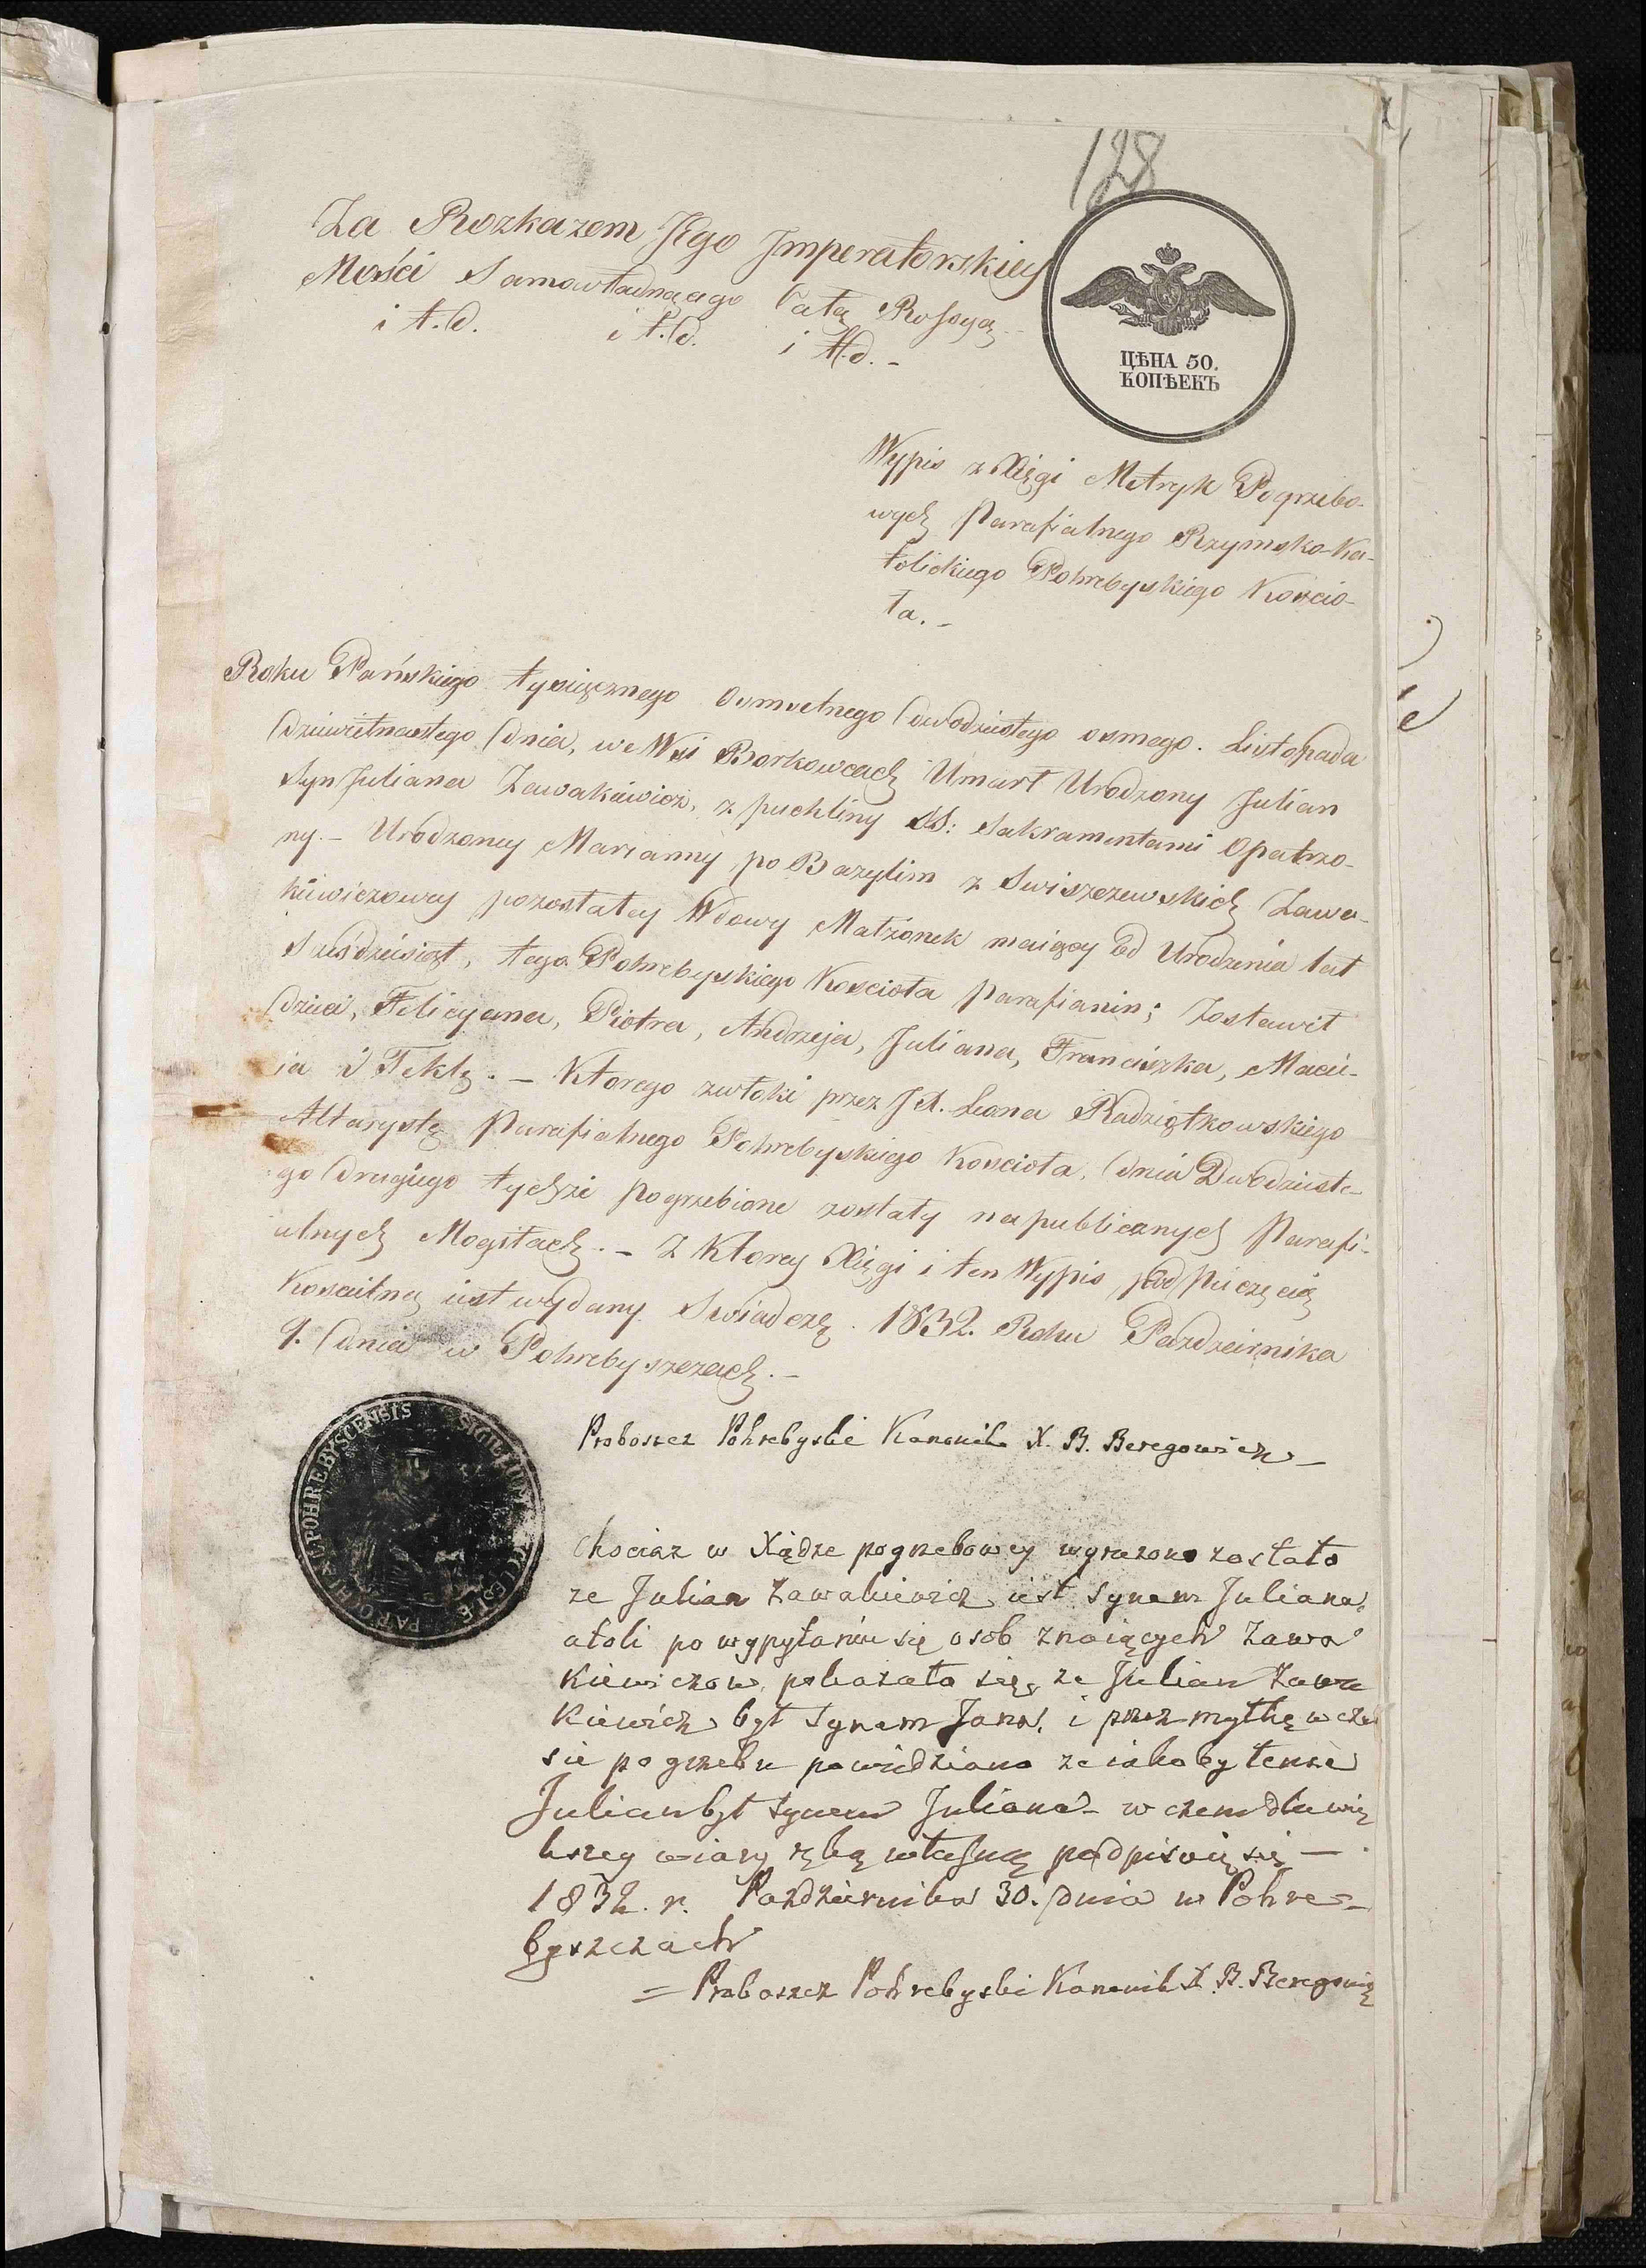 128
Za Rozkazem JEgo Jmperatorskiey
Mości Samowładnącego Całą Rossyą
i t.d. i t.d. i t.d. -
ЦѢНА 50.
КОПѢЕКЪ
Wypis z Xięgi Metryk Pogrzebo-
wych Parafialnego Rzymsko-Ka-
tolickiego Pohrebyskiego Koscio-
ła. -
Roku Pańskiego tysiącznego osmsetnego dwódziestego osmego. Listopada
dziewietnastego dnia, we Wsi Borkowcach Umarł Urodzony Julian
Syn Juliana Zawakiewicz, z puchliny SS: Sakramentami Opatrzo-
ny. - Urodzoney Marianny po Bazylim z Swiszczewskich Zawa-
kiewiczowey pozostałey Wdowy Małżonek maiący od Urodzenia lat
Sześdziesiąt, tego Pohrebyskiego Kosciola parafianin; Zostawił
dzieci, Felicyana, Piotra, Andrzeja, Juliana, Franciszka, Macie-
ia i Teklę. - Ktorego zwłoki przez Leona Radziątkowskiego
Altarystę Parafialnego Pohrebyskiego Kosciola, dnia Dwódzieste-
go drugiego tychże pogrzebione zostały na publicznych Parafi-
alnych Mogiłach. - Z Ktorey Xięgi i ten Wypis pod pieczęcią
Koscielną iest wydany Swiadczę. 1832. Roku Pazdziernika
9. dnia w Pohrebyszczach. -
SIGILLUM ECCLESIÆ PAROCHIAL: POHREBYSCENSIS
Proboszcz Pohrebyski Kanonik X. B. Beregowicz -
Chociaz w Xiędze pogrzebowey wyrazono zostało
ze Julian Zawakiewicz iest synem Juliana,
atoli po wypytaniu się osob znaiących Zawa
kiewiczow, pokazało się, ze Julian Zawa
kiewicz był Synem Jana, i przez myłkę w cza
sie pogrzebu powiedziano ze iakoby tenże
Julian był synem Juliana - w czem dla wię
kszey wiary ręką własną podpisuię się -
1832. r. Pazdziernika 30. dnia w Pohre=
byszczach
= Proboszcz Pohrebyski Kanonik X. B. Beregowicz